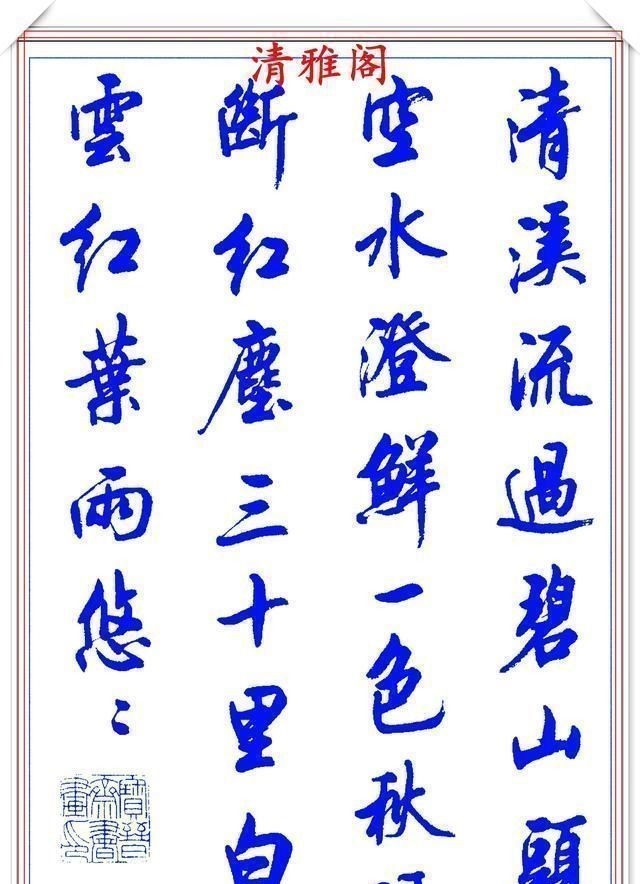 清雅阁
清溪流過碧山頭
空水澄鮮一色秋
斷红塵三十里白
雲红葉兩悠〻
寶晉
齋書
畫印